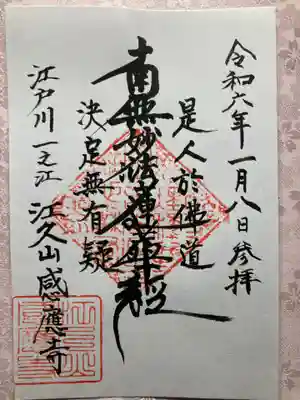 令和六年一月八日参拝
是人於佛道
南無妙法蓮華経
決定無有疑
江戸川一之江 江久山感應寺